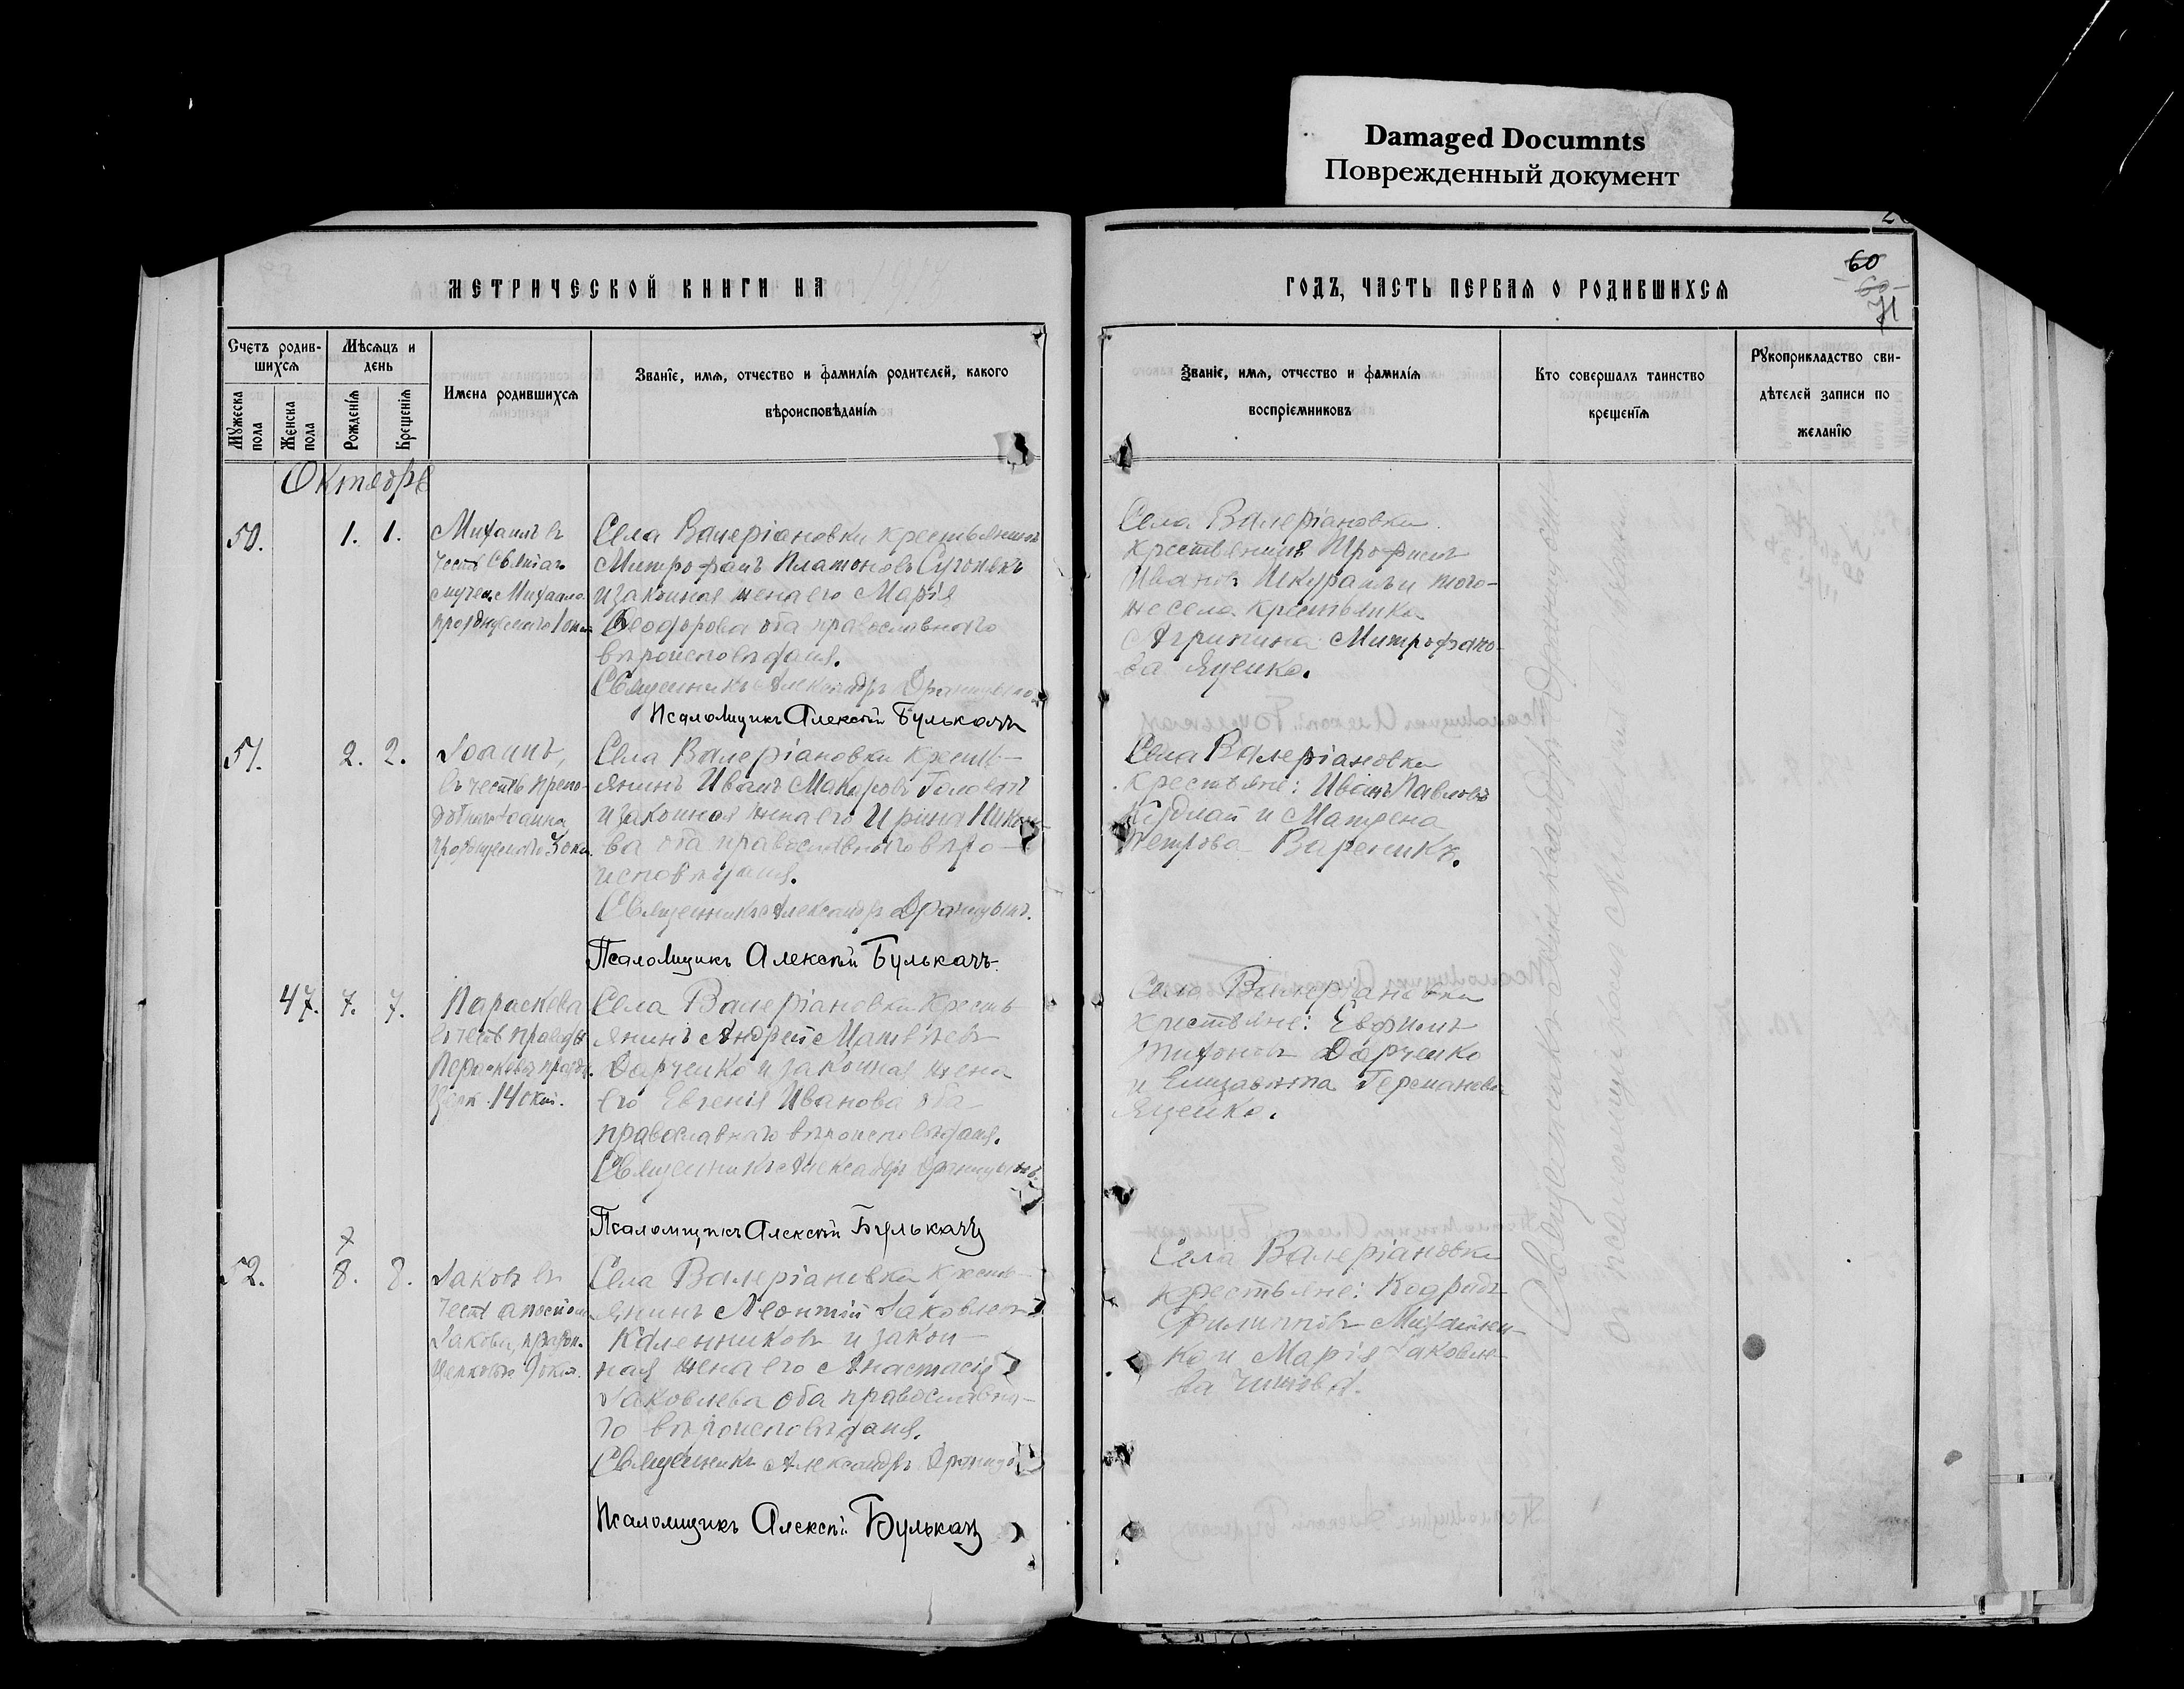 Damaged Documnts
Поврежденный документ
МЕТРИЧЕСКОЙ КНИГИ НА
ГОДЪ, ЧАСТЬ ПЕРВАЯ О РОДИВШИХСЯ
60
71
Счетъ родив-
шихся
Мѣсяцъ и
день
Мужеска
пола
Женска
пола
Рожденія
Крещенія
Имена родившихся
Званіе, имя, отчество и фамилія родителей, какого
вѣроисповѣданія
Званіе, имя, отчество и фамилія
воспріемниковъ
Кто совершалъ таинство
крещенія
Рукоприкладство сви-
дѣтелей записи по
желанію
Октябрь
50. 1. 1.
Михаилъ въ
Села Валеріановки крестьянинъ
Митрофанъ Платоновъ
и законная жена его Марія
Ѳеодорова оба православнаго
вѣроисповѣданія.
Священникъ Александръ
Псаломщикъ Алексѣй Булькачъ
Села Валеріановки
крестьянинъ Трофимъ
Ивановъ Шкуратъ и того-
же села крестьянка
Агрипина Митрофано-
ва Яценко.
51. 2. 2.
Іоаннъ,
въ честь препо-
добнаго Іоанна
Села Валеріановки кресть-
янинъ Иванъ Макаровъ Головач
и законная жена его Ирина
ва оба православнаго вѣро-
исповѣданія.
Священникъ Александръ
Псаломщикъ Алексѣй Булькачъ.
Села Валеріановки
крестьяне: Иванъ Павловъ
Кудлай и Матрена
Петрова Вареникъ.
47. 7. 7.
Параскева
14 окт.
Села Валеріановки кресть
янинъ Андрей Матвѣевъ
Харченко и законная жена
его Евгенія Иванова оба
православнаго вѣроисповѣданія.
Священникъ Александръ
Псаломщикъ Алексѣй Булькачъ
Села Валеріановки
крестьяне: Евфимъ
Тихоновъ Харченко
и Елизавета Германова
Яценко.
52. 8. 8.
Іаковъ въ
честь апостола
Іакова,
Села Валеріановки кресть-
янинъ Леонтій Іаковлевъ
Каленниковъ и закон-
ная жена его Анастасія
Іаковлева оба православна-
го вѣроисповѣданія.
Священникъ Александръ
Псаломщикъ Алексѣй Булькачъ
Села Валеріановки
крестьяне: Кодратъ
Филипповъ Михайли-
ко и Марія Іаковле-
ва
Священникъ Александръ
съ псаломщикомъ